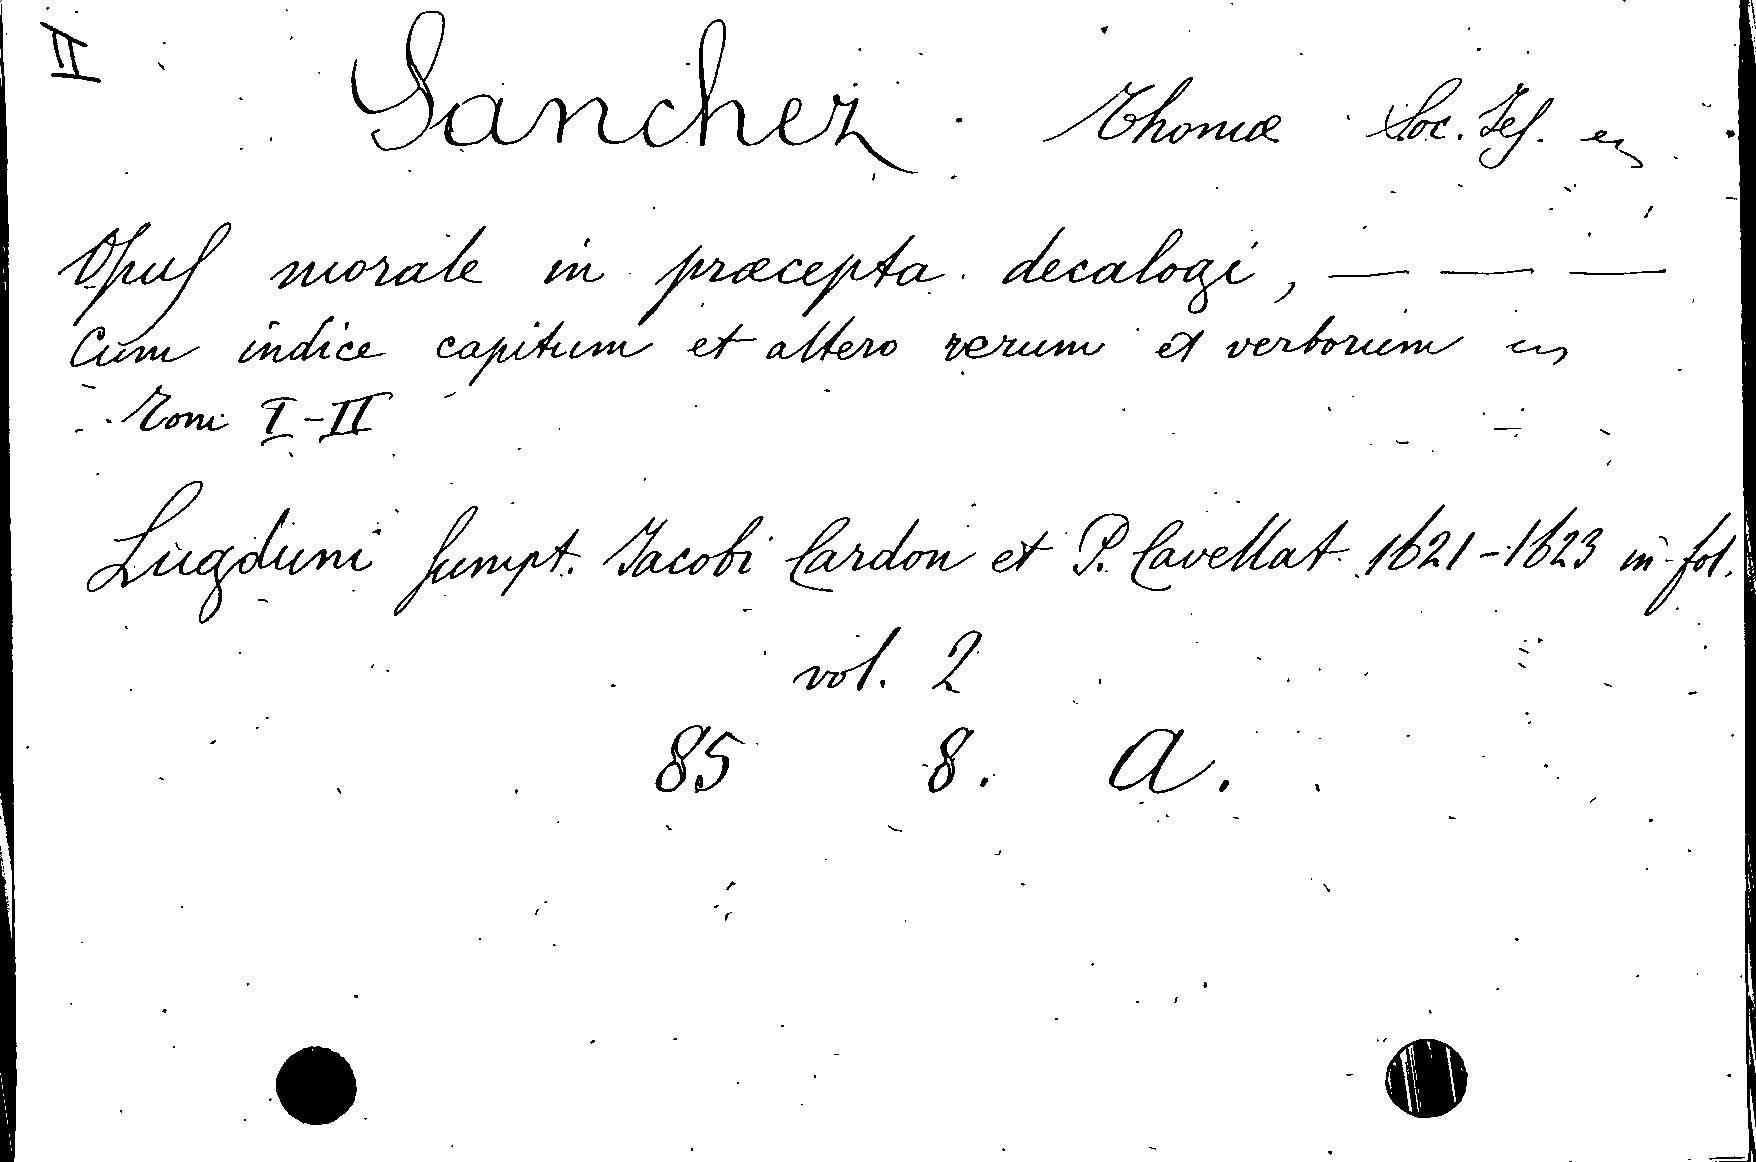 II
Sanchez Thomæ Soc. Jes.
Opus morale in præcepta decalogi, — — —
Cum indice capitum et altero rerum et verborum
Tomi I-II
Lugduni sumpt. Jacobi Cardon et P. Cavellat 1621-1623 in fol.
vol. 2
85 8. A.